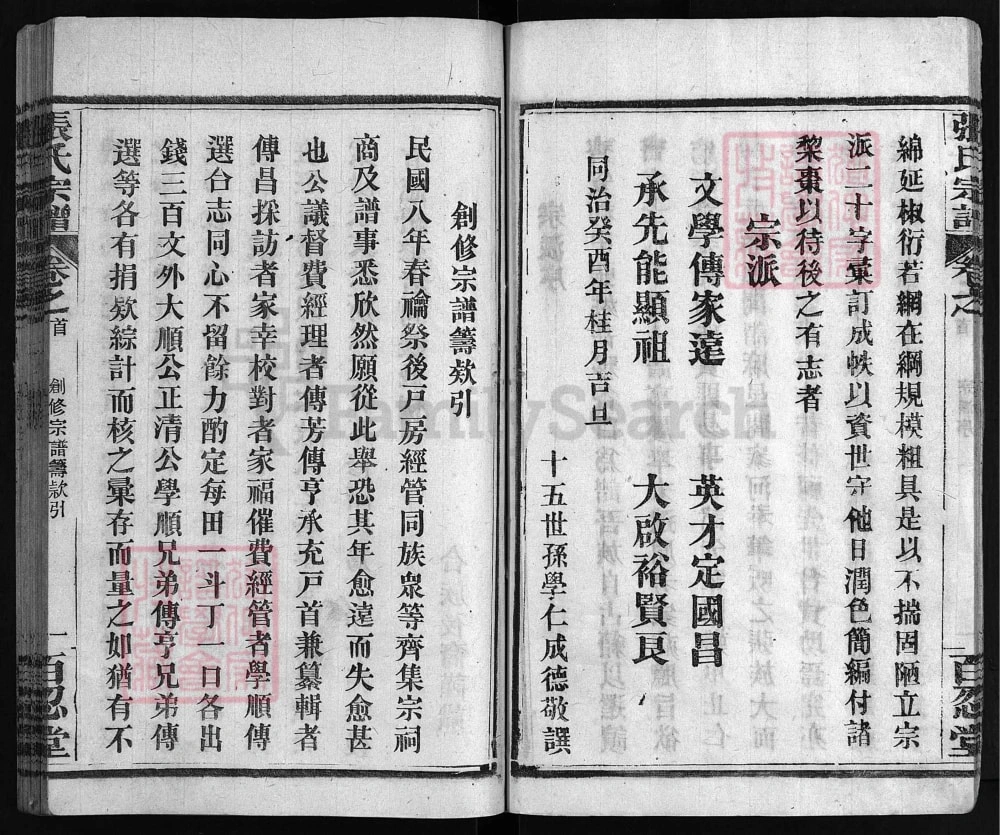 綿延椒衍若網在綱規模粗具是以不揣固陋立宗
派二十字彙訂成帙以資世守他日潤色簡編付諸
棃棗以待後之有志者
宗派
文學傳家遠 英才定國昌
承先能顯祖 大啟裕賢良
同治癸酉年桂月吉旦
十五世孫學仁成德敬譔
張氏宗譜 卷之首 百忍堂
創修宗譜籌欵引
民國八年春禴祭後戸房經管同族衆等齊集宗祠
商及譜事悉欣然願從此舉恐其年愈遠而失愈甚
也公議督費經理者傳芳傳亨承充戸首兼纂輯者
傳昌採訪者家幸校對者家福催費經管者學順傳
選台志同心不留餘力酌定每田一斗丁一口各出
錢三百文外大順公正清公學順兄弟傳亨兄弟傳
選等各有捐欵綜計而核之彙存而量之如猶有不
張氏宗譜 卷之首 創修宗譜籌款引 一 百忍堂
FamilySearch